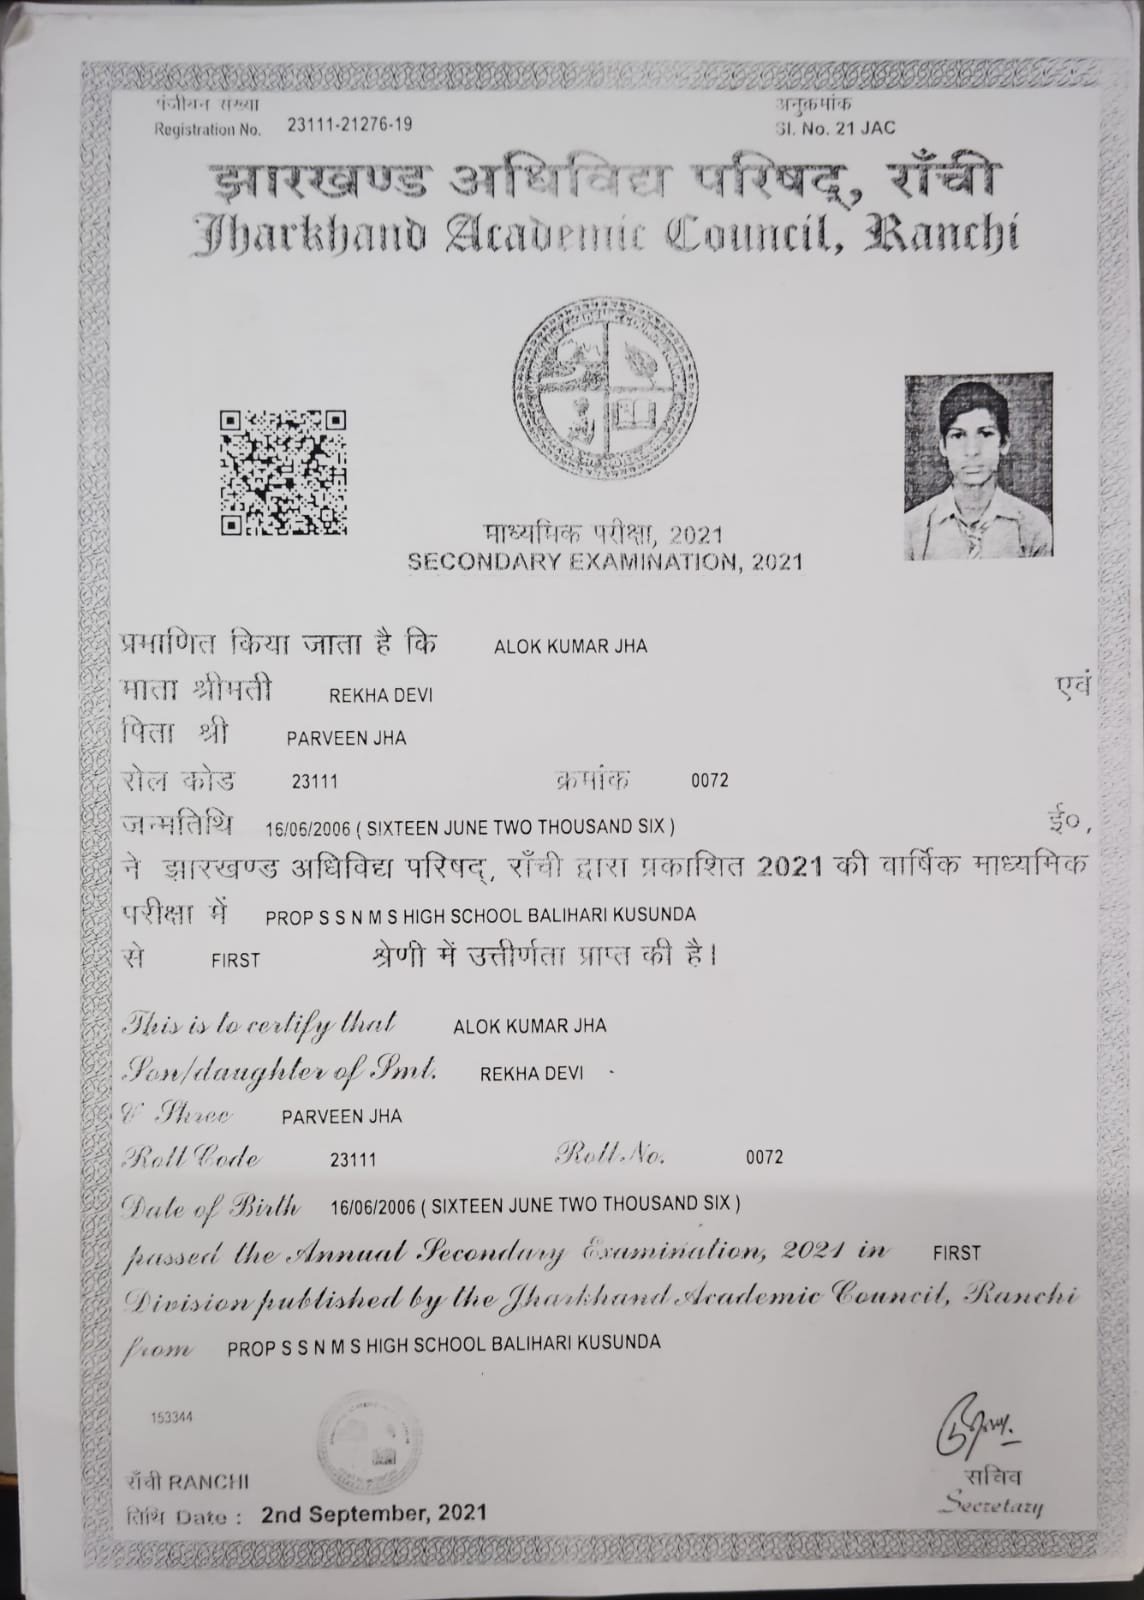 पंजीयन संख्या
Registration No. 23111-21276-19
अनुक्रमांक
Sl. No. 21 JAC
झारखण्ड अधिविद्य परिषद्, राँची
Jharkhand Academic Council, Ranchi
माध्यमिक परीक्षा, 2021
SECONDARY EXAMINATION, 2021
प्रमाणित किया जाता है कि ALOK KUMAR JHA
माता श्रीमती REKHA DEVI एवं
पिता श्री PARVEEN JHA
रोल कोड 23111 क्रमांक 0072
जन्मतिथि 16/06/2006 ( SIXTEEN JUNE TWO THOUSAND SIX ) ई०,
ने झारखण्ड अधिविद्य परिषद्, राँची द्वारा प्रकाशित 2021 की वार्षिक माध्यमिक
परीक्षा में PROP S S N M S HIGH SCHOOL BALIHARI KUSUNDA
से FIRST श्रेणी में उत्तीर्णता प्राप्त की है।
This is to certify that ALOK KUMAR JHA
Son/daughter of Smt. REKHA DEVI
& Shree PARVEEN JHA
Roll Code 23111 Roll No. 0072
Date of Birth 16/06/2006 ( SIXTEEN JUNE TWO THOUSAND SIX )
passed the Annual Secondary Examination, 2021 in FIRST
Division published by the Jharkhand Academic Council, Ranchi
from PROP S S N M S HIGH SCHOOL BALIHARI KUSUNDA
153344
राँची RANCHI
तिथि Date : 2nd September, 2021
सचिव
Secretary